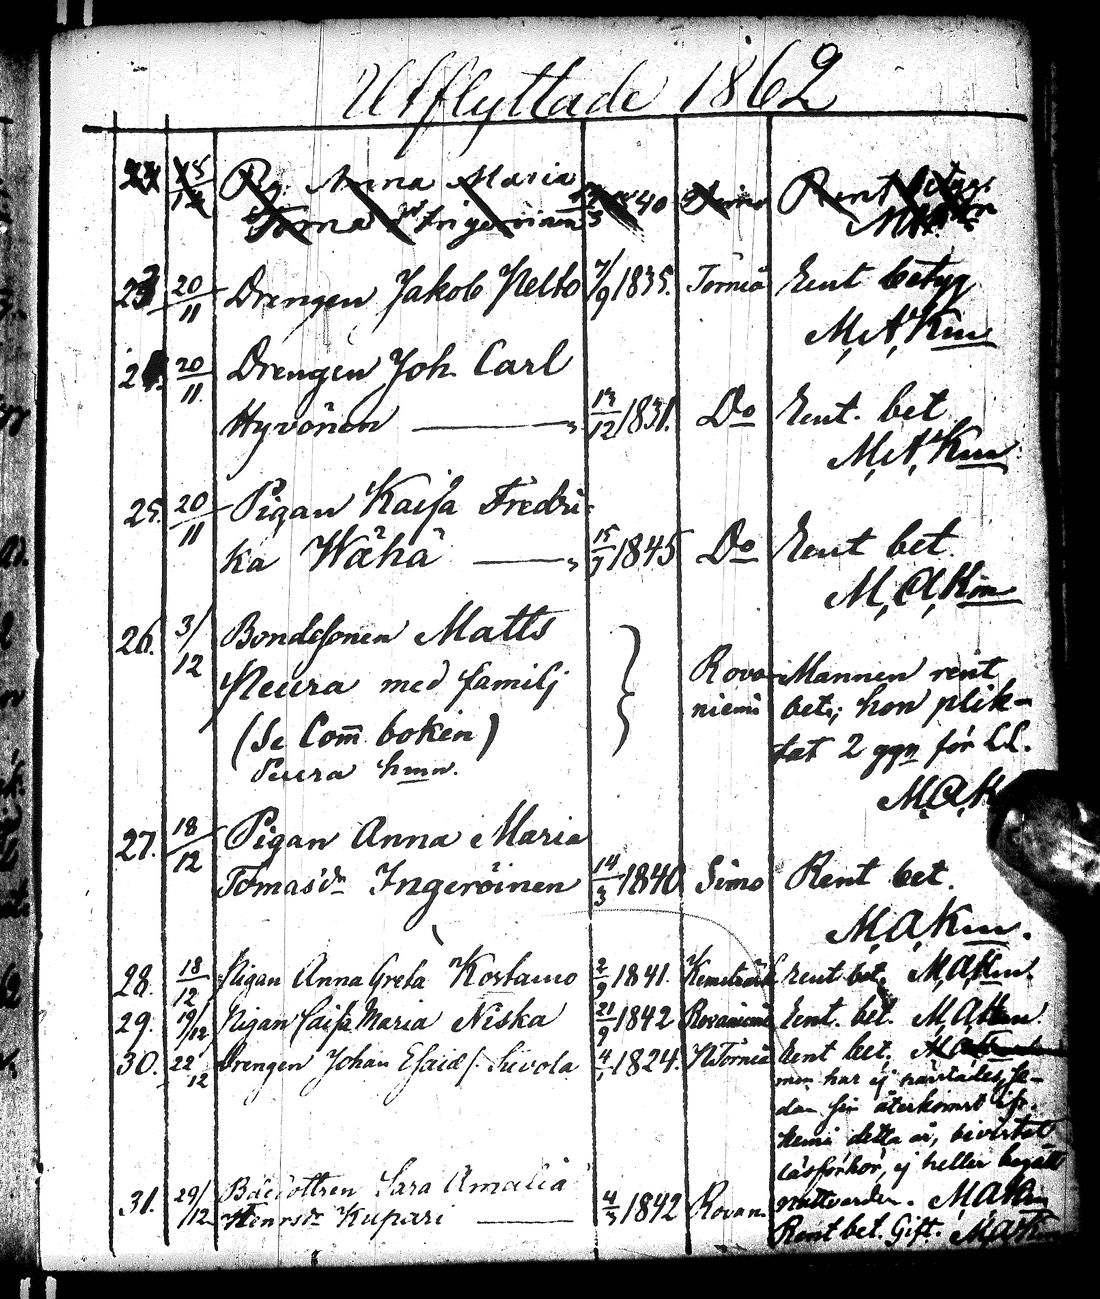 Utflyttade 1862
Pig. Anna Maria
Ingeröinen 40 Simo Rent betyg
23 20/11 Drengen Jakob Pelto 7/9 1835. Torneå Rent betyg
M. A. Km
20/11 Drengen Joh. Carl
Hyvönen — " 13/12 1831. Do Rent. bet
M. A. Km
25. 20/11 Pigan Kaisa Fredri-
ka Wähä — " 15/7 1845 Do Rent bet.
M. A. Km
26. 3/12 Bondesonen Matts
Peura med familj Rova- Mannen rent
niemi bet; hon plik-
(Se Com̄ boken) tat 2 ggn för LL.
Peura hmn. M. A. K
27. 18/12 Pigan Anna Maria
Tomasdr Ingeröinen 14/3 1840 Simo Rent bet.
M. A. Km.
28. 18/12 Pigan Anna Greta Kostamo 2/9 1841. Kemiträsk Rent bet. M. A. Km.
29. 19/12 Pigan Caisa Maria Niska 21/9 1842 Rovaniemi Rent. bet. M. A. Km.
30. 22/12 Drengen Johan Esaias s. Sievola 1824. N Torneå Rent bet.
men har ej se-
dan sin återkomst
Kemi detta år, bevistat
läsförhör, ej heller begått
nattvarden. M. A. Km
31. 29/12 Sara Amalia
Henrsdr Kupari — 4/3 1842 Rovan. Rent bet. Gift. M. A. Km